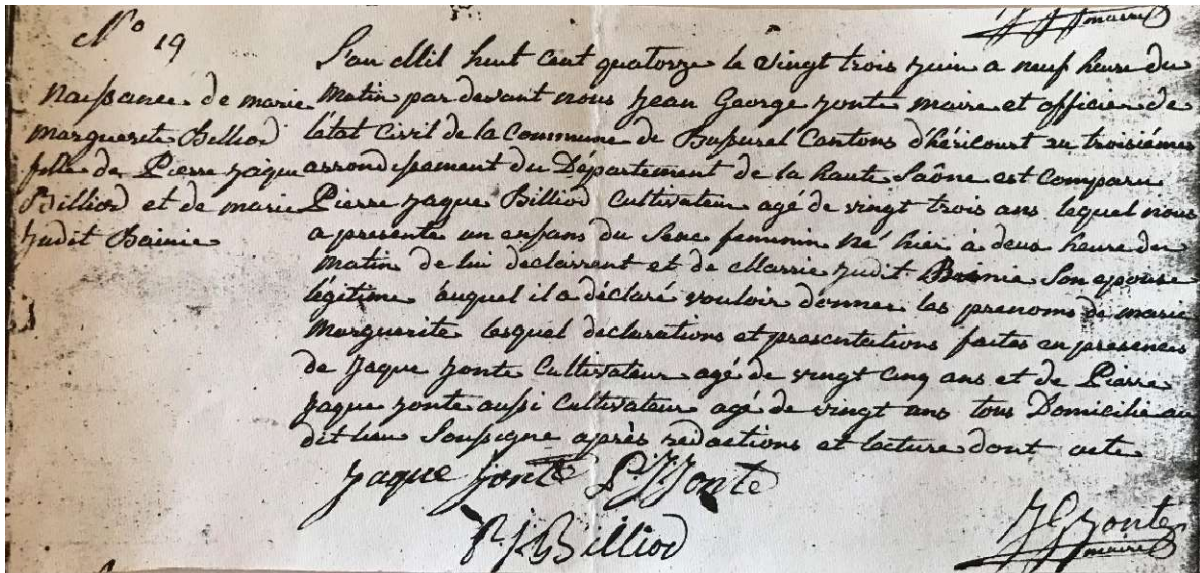 maire
N° 19
Naissance de marie
marguerite Billiod
fille de Pierre Jaque
Billiod et de marie
Judit Bainie
L'an Mil huit cent quatorze le vingt trois juin a neuf heure du
matin par devant nous Jean George Jonte maire et officier de
l'état Civil de la Commune de Bussurel Cantons d'héricourt au troisiéme
arrondissement du Département de la haute Saône est comparu
Pierre Jaque Billiod Cultivateur agé de vingt trois ans lequel nous
a presenté un enfans du Sexe feminin né hier à deux heure du
matin de lui declarrent et de Marrie Judit Bainie Son epouse
légitime auquel il a déclaré vouloir donner les prenoms de marie
Marguerite lesquel declarations et presentations faites en presence
de Jaque Jonte Cultivateur agé de vingt cinq ans et de Pierre
Jaque Jonte aussi Cultivateur agé de vingt ans tous Domicilie au
dit lieu Soussigné après redactions et lecture dont acte
Jaque Jonte P. J. Jonte
P. J. Billiod
J G Jonte
maire